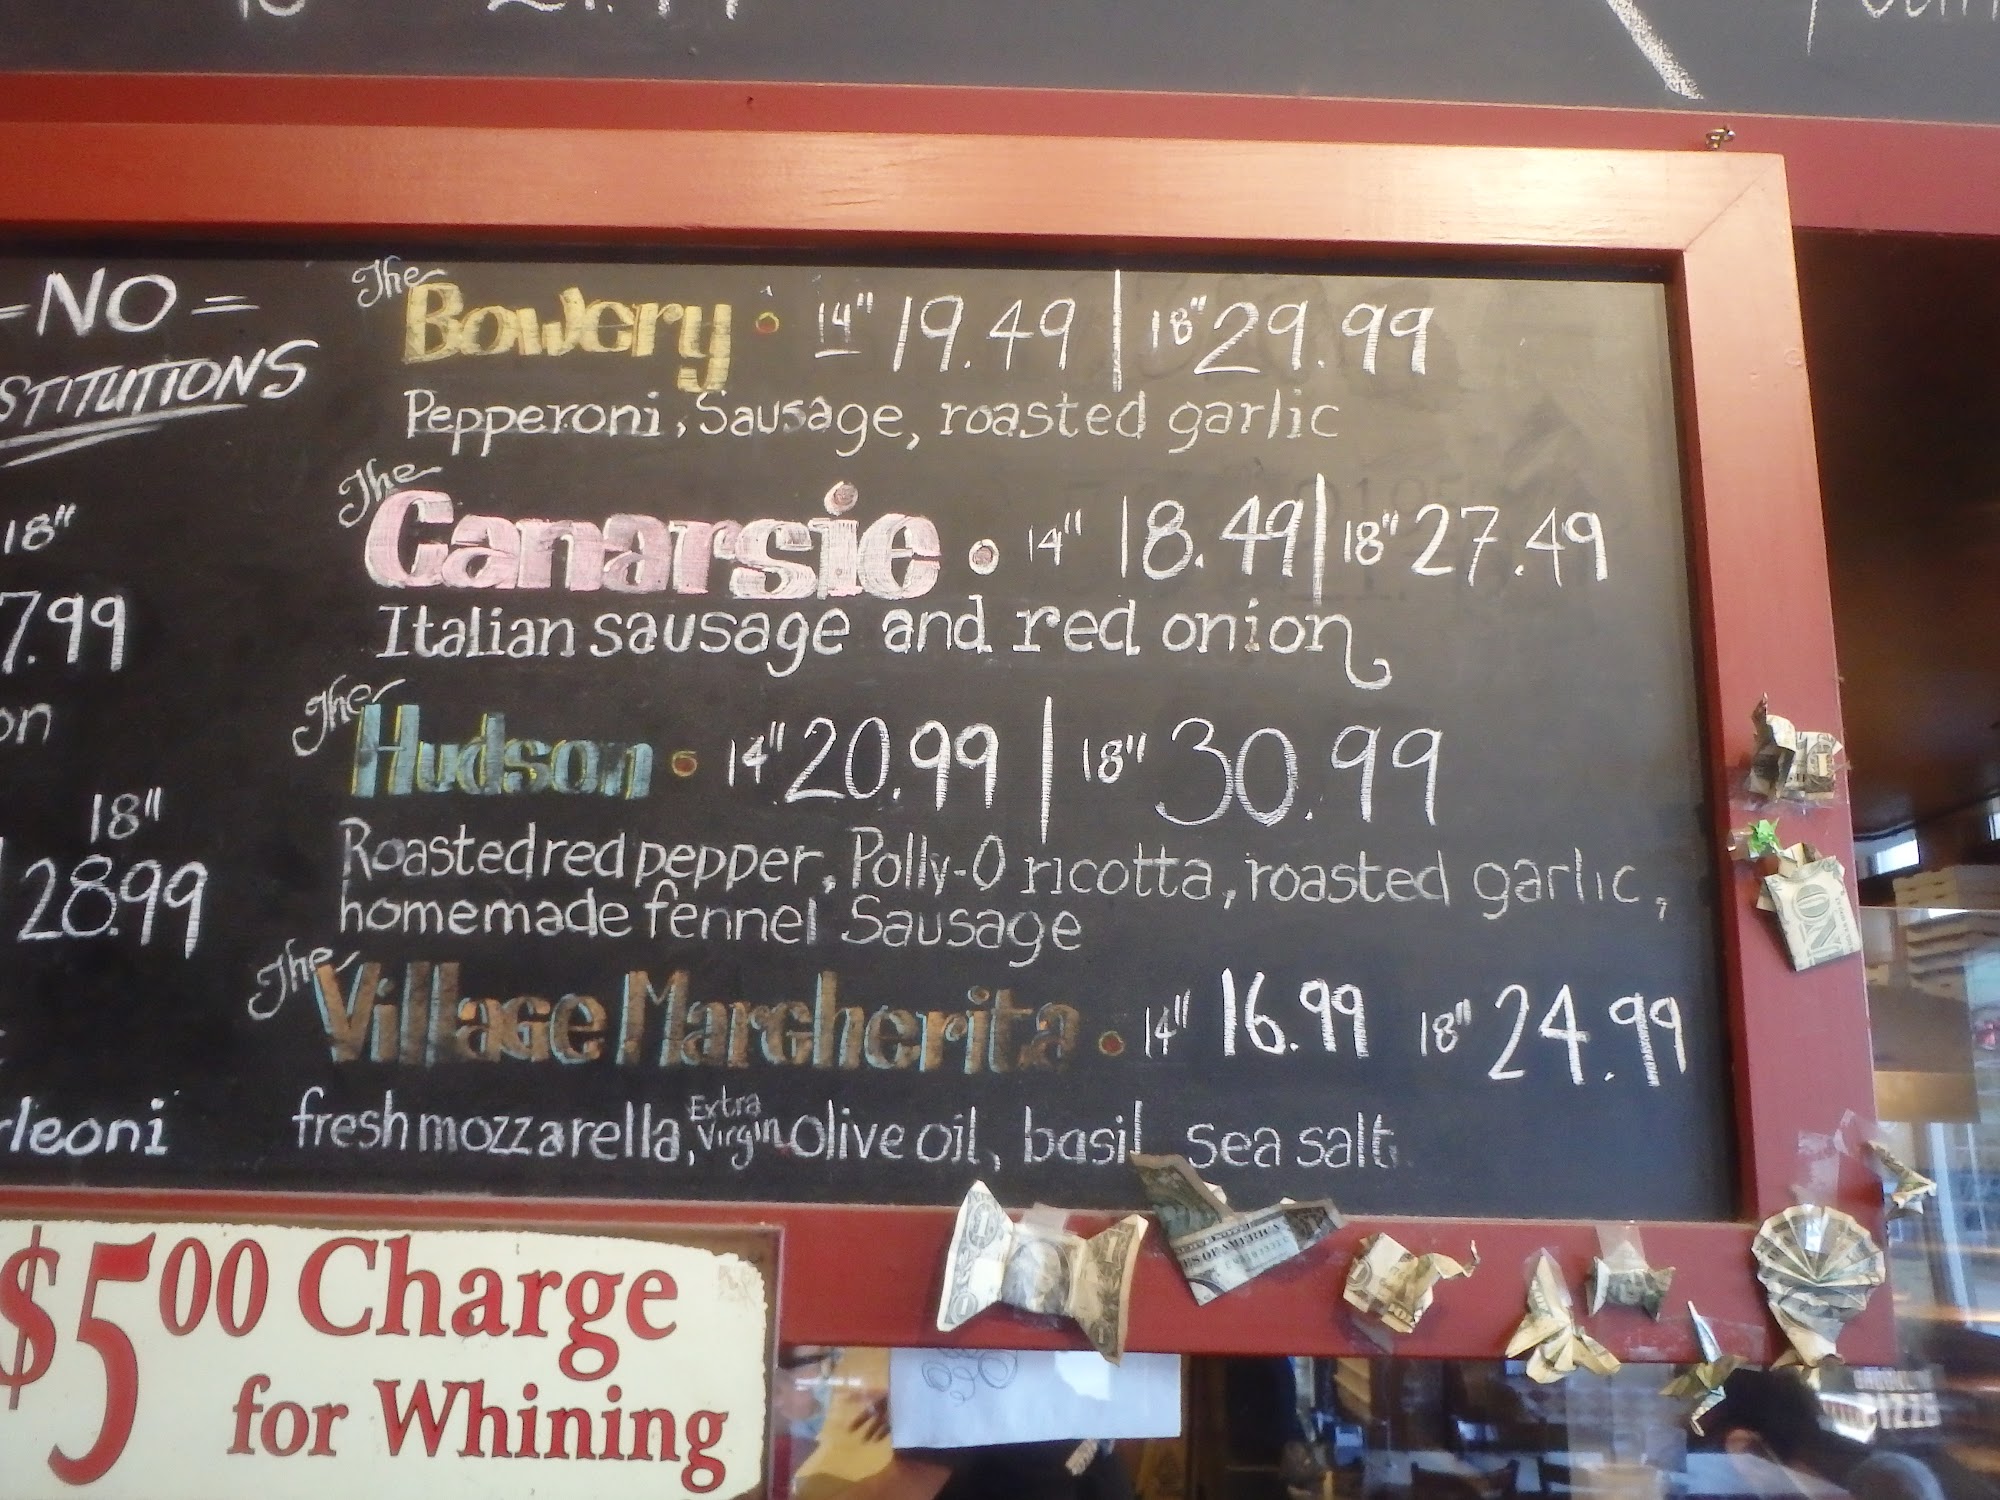 NO
The Bowery • 14" 19.49 | 18" 29.99
Pepperoni, Sausage, roasted garlic
The Canarsie • 14" 18.49 | 18" 27.49
Italian sausage and red onion
The Hudson • 14" 20.99 | 18" 30.99
Roasted red pepper, Polly-O ricotta, roasted garlic,
homemade fennel Sausage
The Village Margherita • 14" 16.99 18" 24.99
fresh mozzarella, Extra Virgin olive oil, basil, sea salt
18"
18"
28.99
$5.00 Charge
for Whining